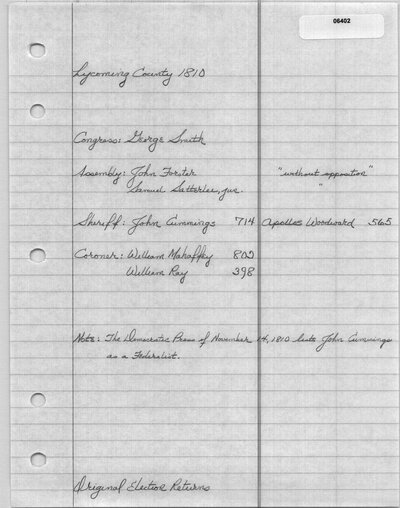 06402
Lycoming County 1810
Congress: George Smith
Assembly: John Forster "without opposition"
Samuel Satterlee, jun. "
Sheriff: John Cummings 714 Apollos Woodward 565
Coroner: William Mahaffey 802
William Ray 398
Note: The Democratic Press of November 14, 1810 lists John Cummings
as a Federalist.
Original Election Returns